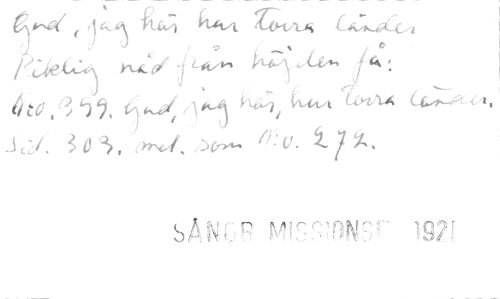 Gud, jag hör hur torra länder
Riklig nåd från höjden få:
N:o. 399. Gud, jag hör, hur torra länder.
Sid. 303. mel. som N:o. 272.
SÅNGB MISSIONSF 1921